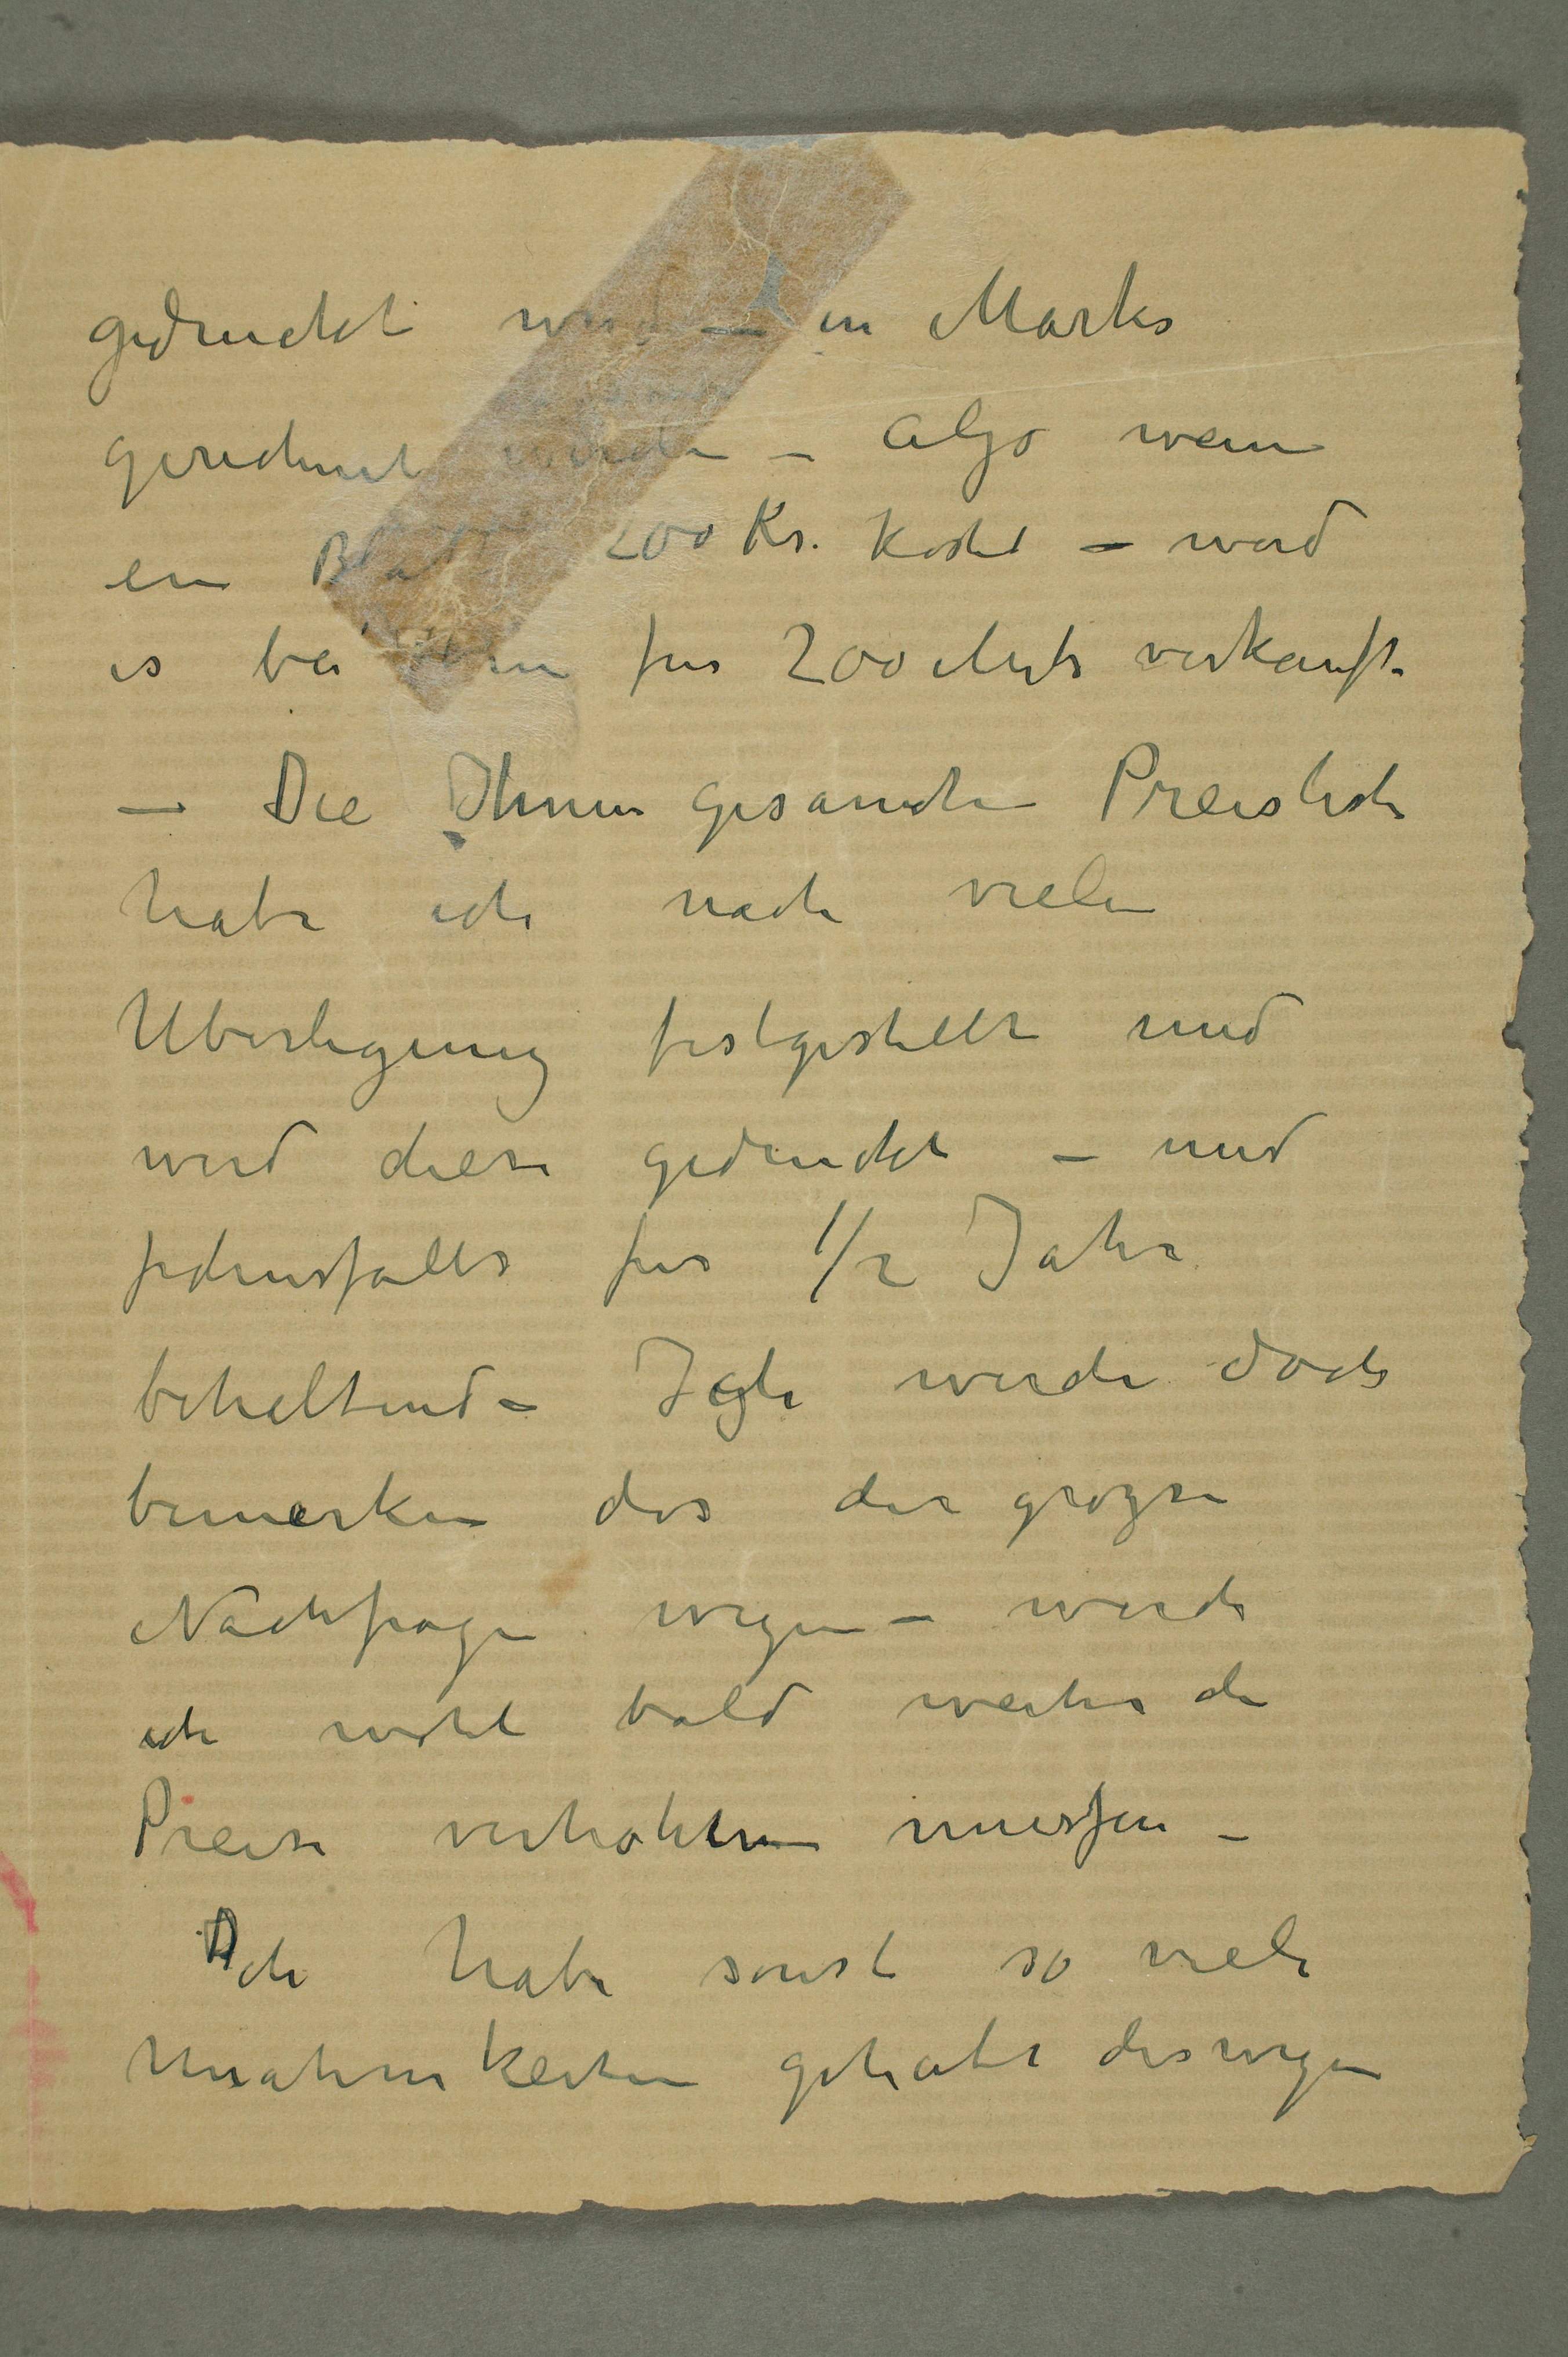 gedruckt wird – in Marks
gerechnet werden – also wenn
ein Blatt 200 Kr. kostet – wird
es bei Ihnen für 200 Mark verkauft.
– Die Ihnen gesandte Preisliste
habe ich nach vielen
Uberlegung festgestellt und
wird diese gedruckt – und
jedensfalls fur 1/2 Jahr
behaltend – Ich werde doch
bemerken das der grozse
Nachfrage wegen – werde
ich wohl bald weiter die
Preise verhohen muessen –
Ich habe sonst so viele
gehabt deswegen